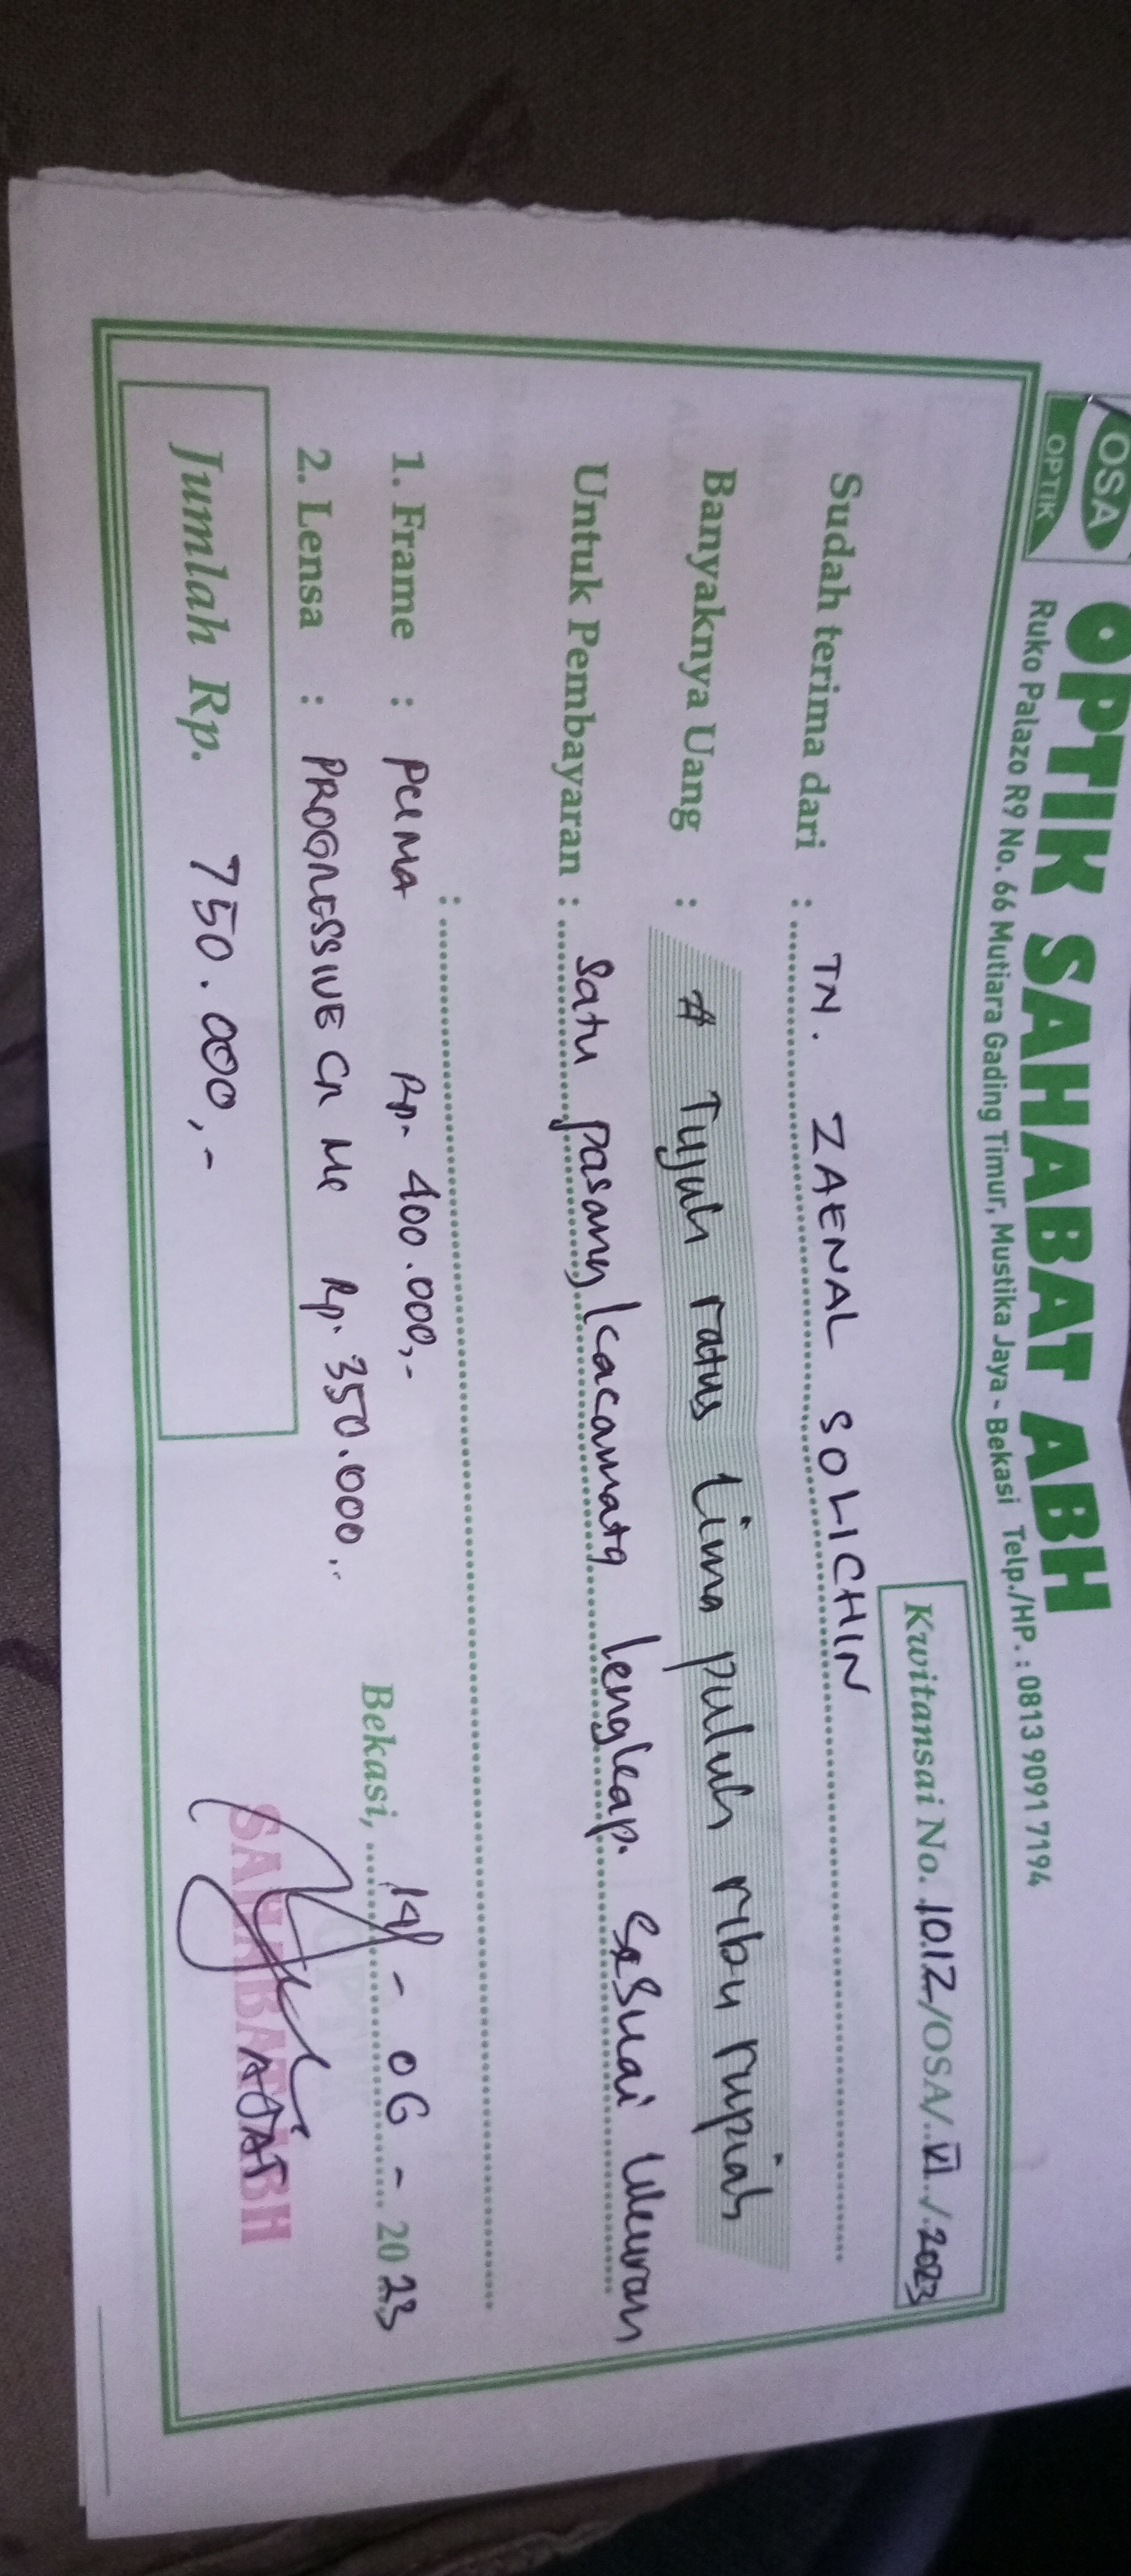 OSA
OPTIK
OPTIK SAHABAT ABH
Ruko Palazo R9 No. 66 Mutiara Gading Timur, Mustika Jaya - Bekasi Telp./HP. : 0813 9091 7194
Kwitansai No. 1012/OSA/..VI../.2023
Sudah terima dari : TN. ZAENAL SOLICHIN
Banyaknya Uang : # Tujuh ratus Lima puluh ribu rupiah
Untuk Pembayaran : satu pasang kacamata lengkap. sesuai ukuran
:
1. Frame : PUMA Rp. 400.000,-
2. Lensa : PROGRESSIVE CR MC Rp. 350.000,-
Bekasi, 14 - 06 - 2023
Jumlah Rp. 750.000,-
SAHABAT ABH
AJAT